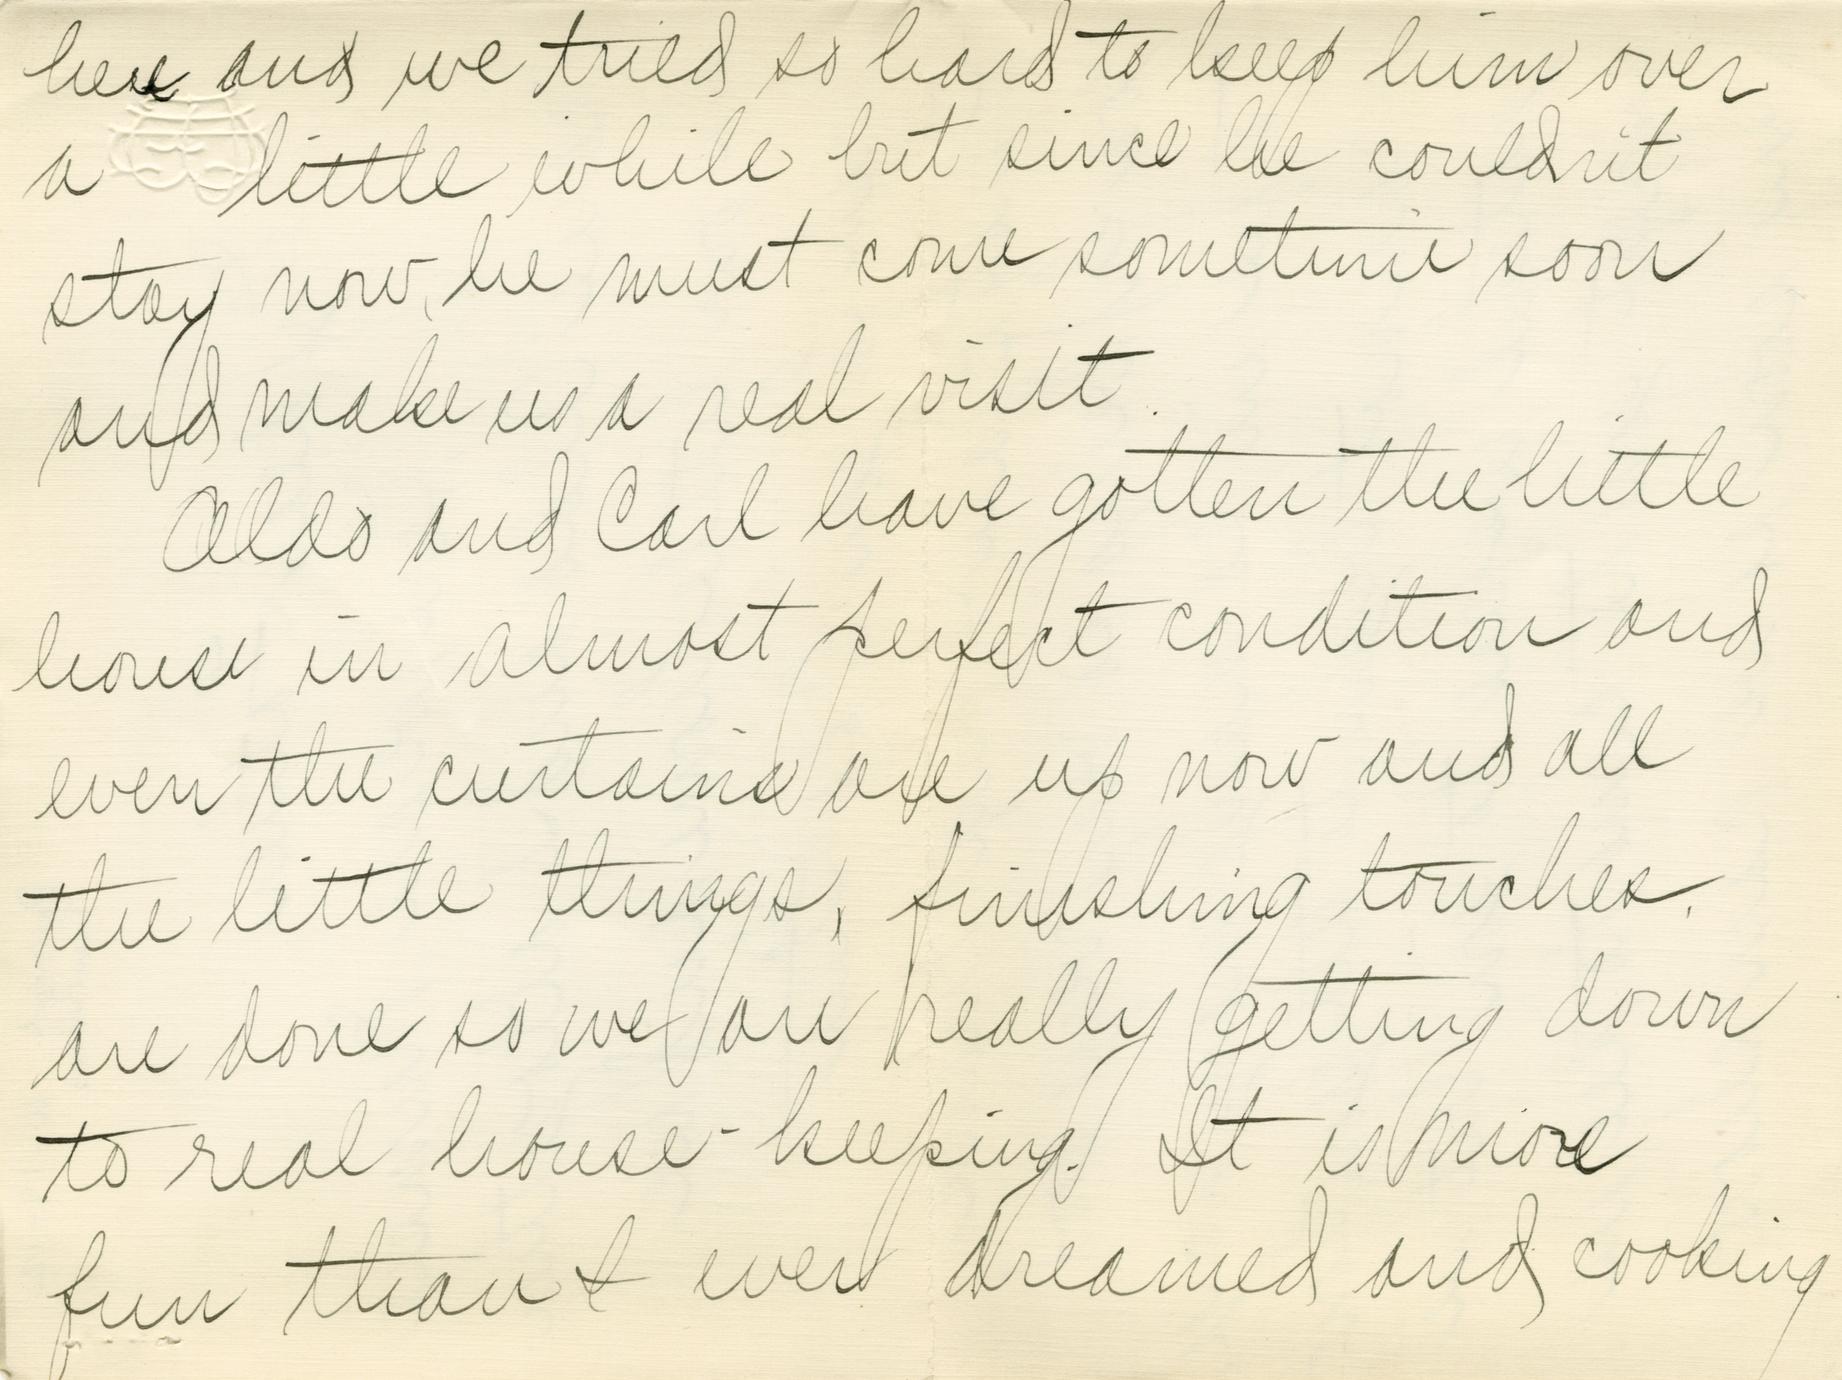 here and we tried so hard to keep him over
a little while but since he couldn't
stay now, he must come sometime soon
and make us a real visit.
Aldo and Carl have gotten the little
house in almost perfect condition and
even the curtains are up now and all
the little things, finishing touches,
are done so we are really getting down
to real house-keeping. It is more
fun than I ever dreamed and cooking